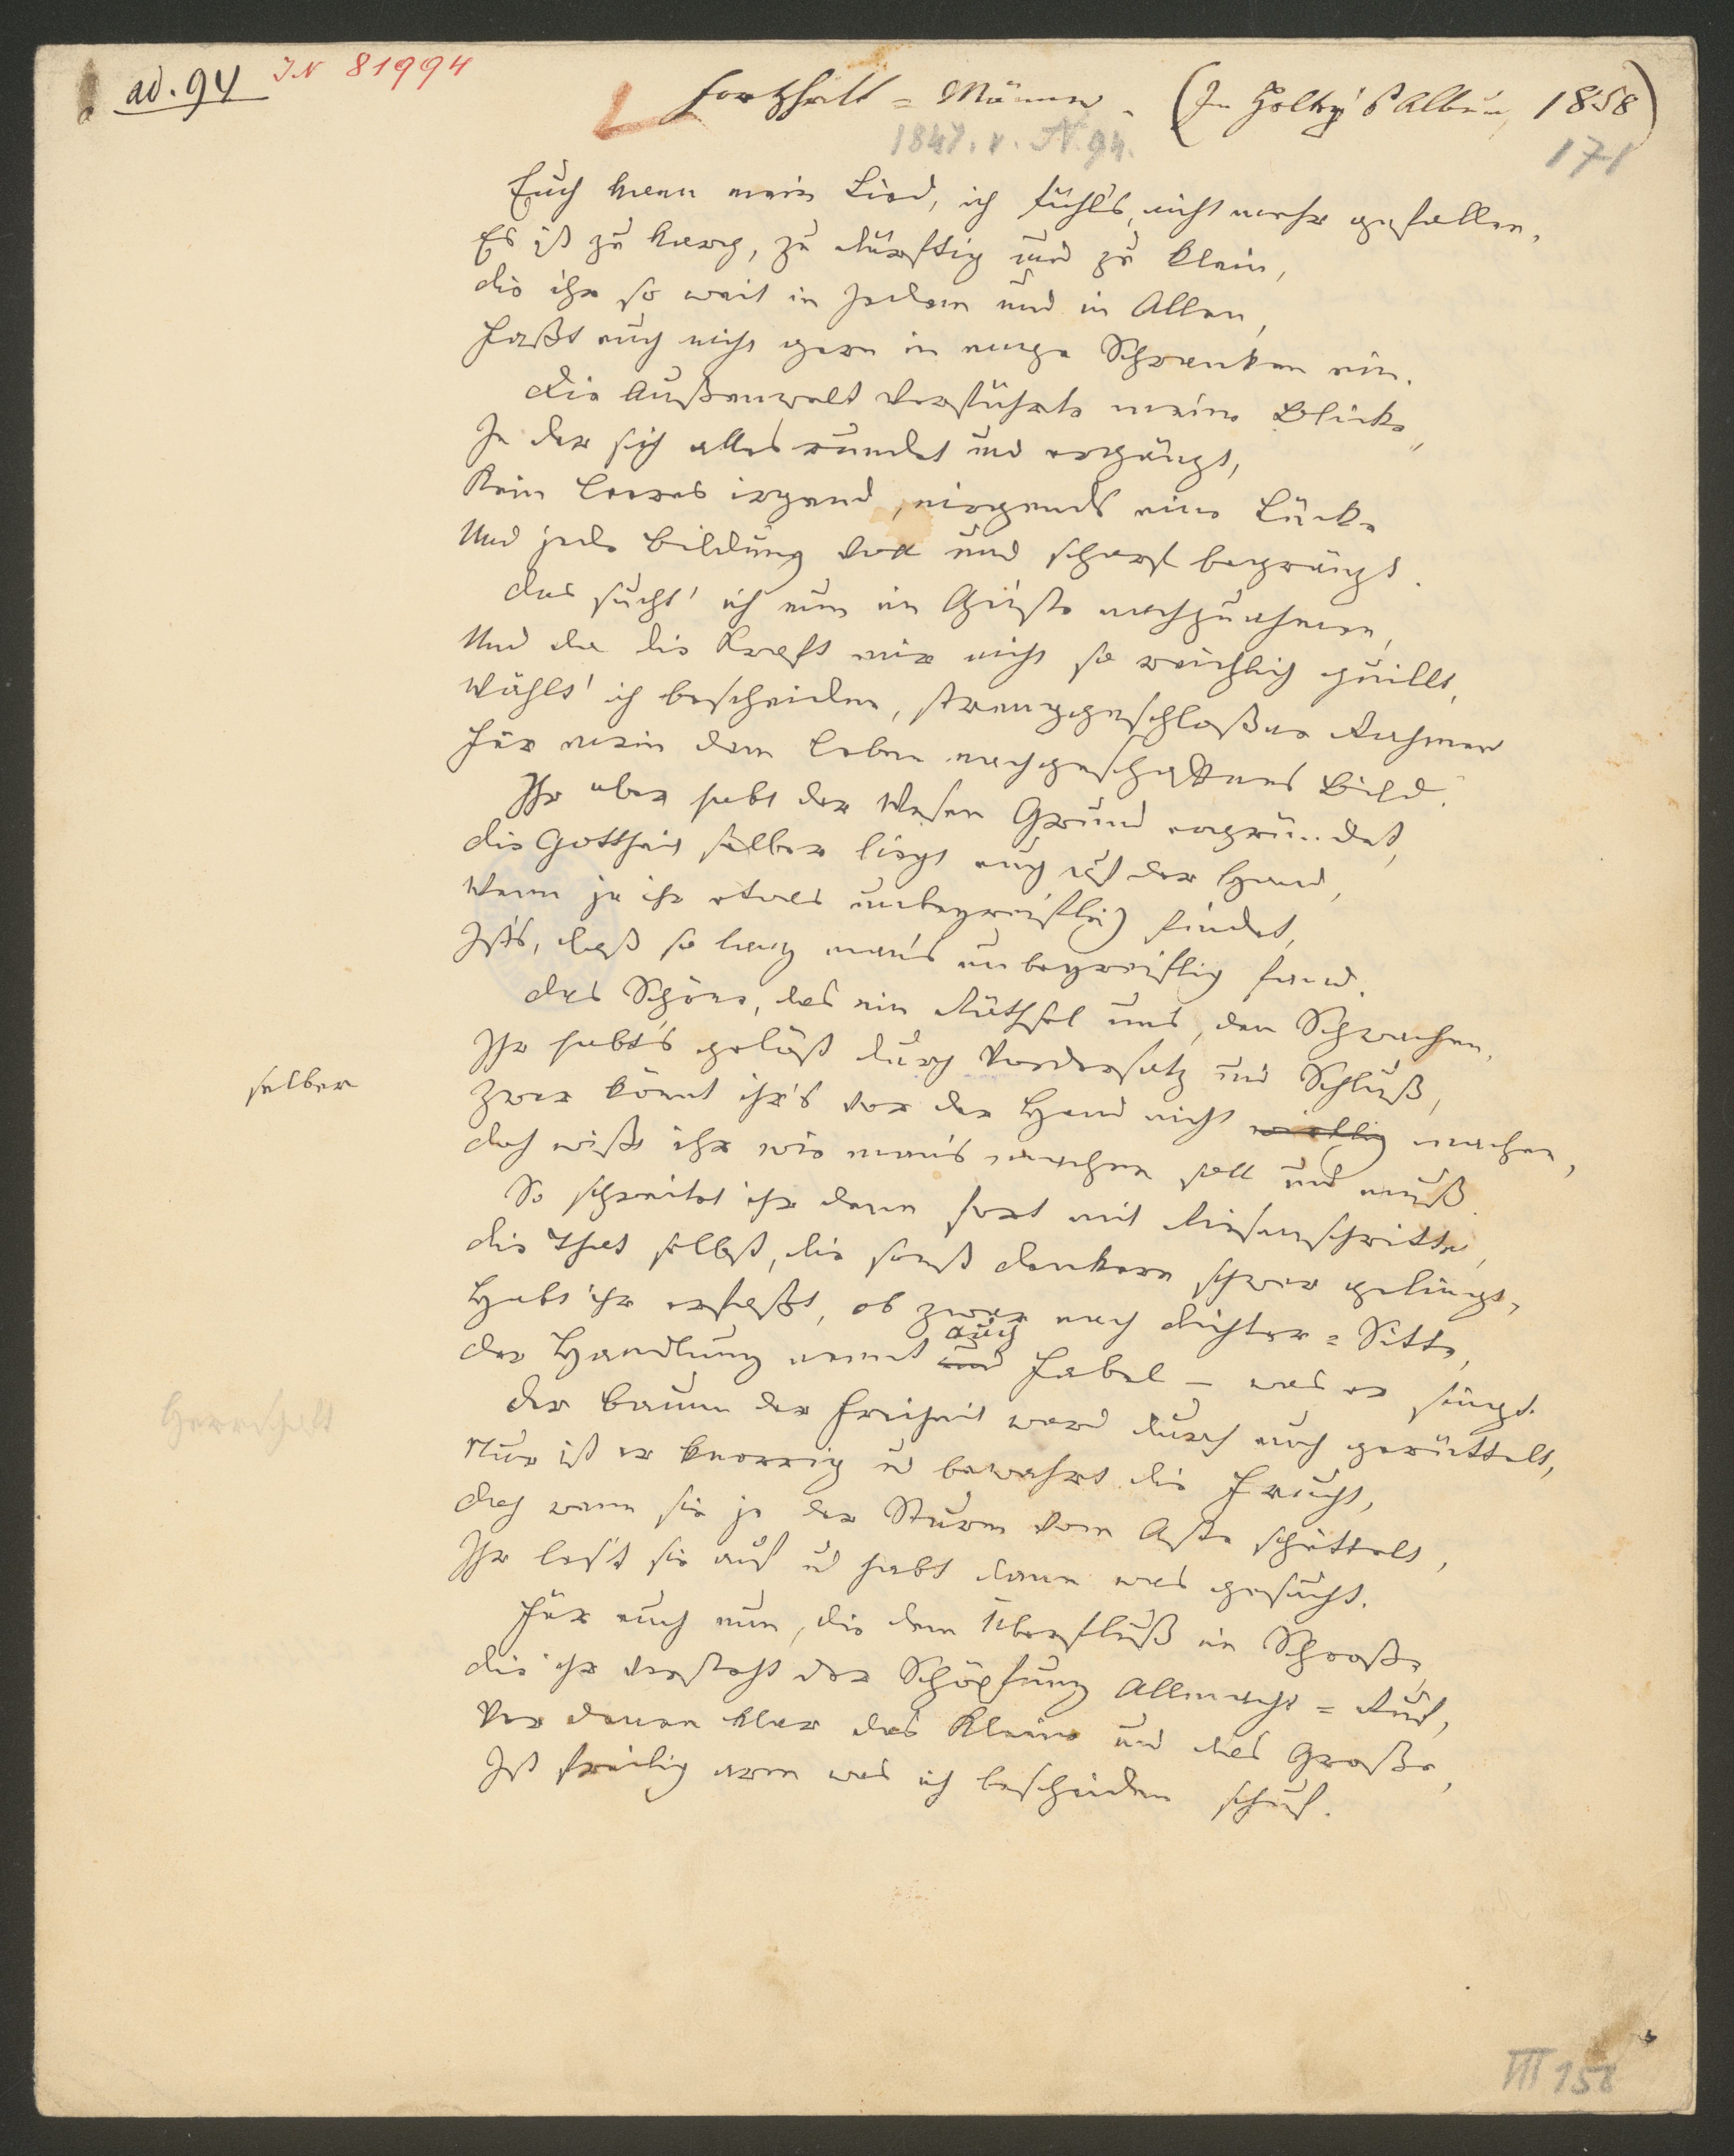 ad. 94 IN 81994
Fortschritt-Männer. (In Holtey's Album, 1858)
1847. v. N. 94.
171
Euch kann mein Lied, ich fühl's, nicht mehr gefallen,
Es ist zu karg, zu dürftig und zu klein,
die ihr so weit in Jedem und in Allen,
Faßt euch nicht gern in enge Schranken ein.
die Außenwelt verführte meine Blicke,
In der sich alles rundet und ergänzt,
Kein Leeres irgend, nirgends eine Lücke
Und jede Bildung voll und scharf begränzt.
das sucht' ich nun im Geiste nachzuahmen,
Und da die Kraft mir nicht so reichlich quillt,
Wählt' ich bescheiden, strenggeschloßne Rahmen
Für mein dem Leben nachgeschaffnes Bild.
Ihr aber habt der Wesen Grund ergründet,
die Gottheit selber liegt euch auf der Hand,
Wenn je ihr etwas unbegreiflich findet,
Ists, daß so lang man's unbegreiflich fand.
das Schöne, das ein Räthsel uns, den Schwachen,
Ihr habt's gelöst durch Vordersatz und Schluß,
selber
Zwar könnt ihr's vor der Hand nicht wirklich machen,
doch wißt ihr wie man's machen soll und muß.
So schreitet ihr denn fort mit Riesenschritte,
die That selbst, die sonst Denkern schwer gelingt,
Habt ihr erfaßt, ob zwar nach Dichter-Sitte,
auch
der Handlung nennt und Fabel – was er singt.
Herrschaft
der Baum der Freiheit ward durch euch gerüttelt,
Nur ist er knorrig u bewahrt die Frucht,
doch wenn sie je der Sturm vom Aste schüttelt,
Ihr lest sie auf u habt dann was gesucht.
Für euch nun, die dem Überfluß im Schooße,
die ihr versteht der Schöpfung Allmacht-Ruf,
Vor denen klar das Kleine und das Große,
Ist freilich arm was ich bescheiden schuf.
VIII 158